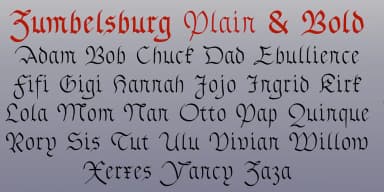 Zumbelsburg Plain & Bold
Adam Bob Chuck Dad Ebullience
Fifi Gigi Hannah Jojo Ingrid Kirk
Lola Mom Nan Otto Pap Quinque
Rory Sis Tut Ulu Vivian Willow
Xerxes Yancy Zaza